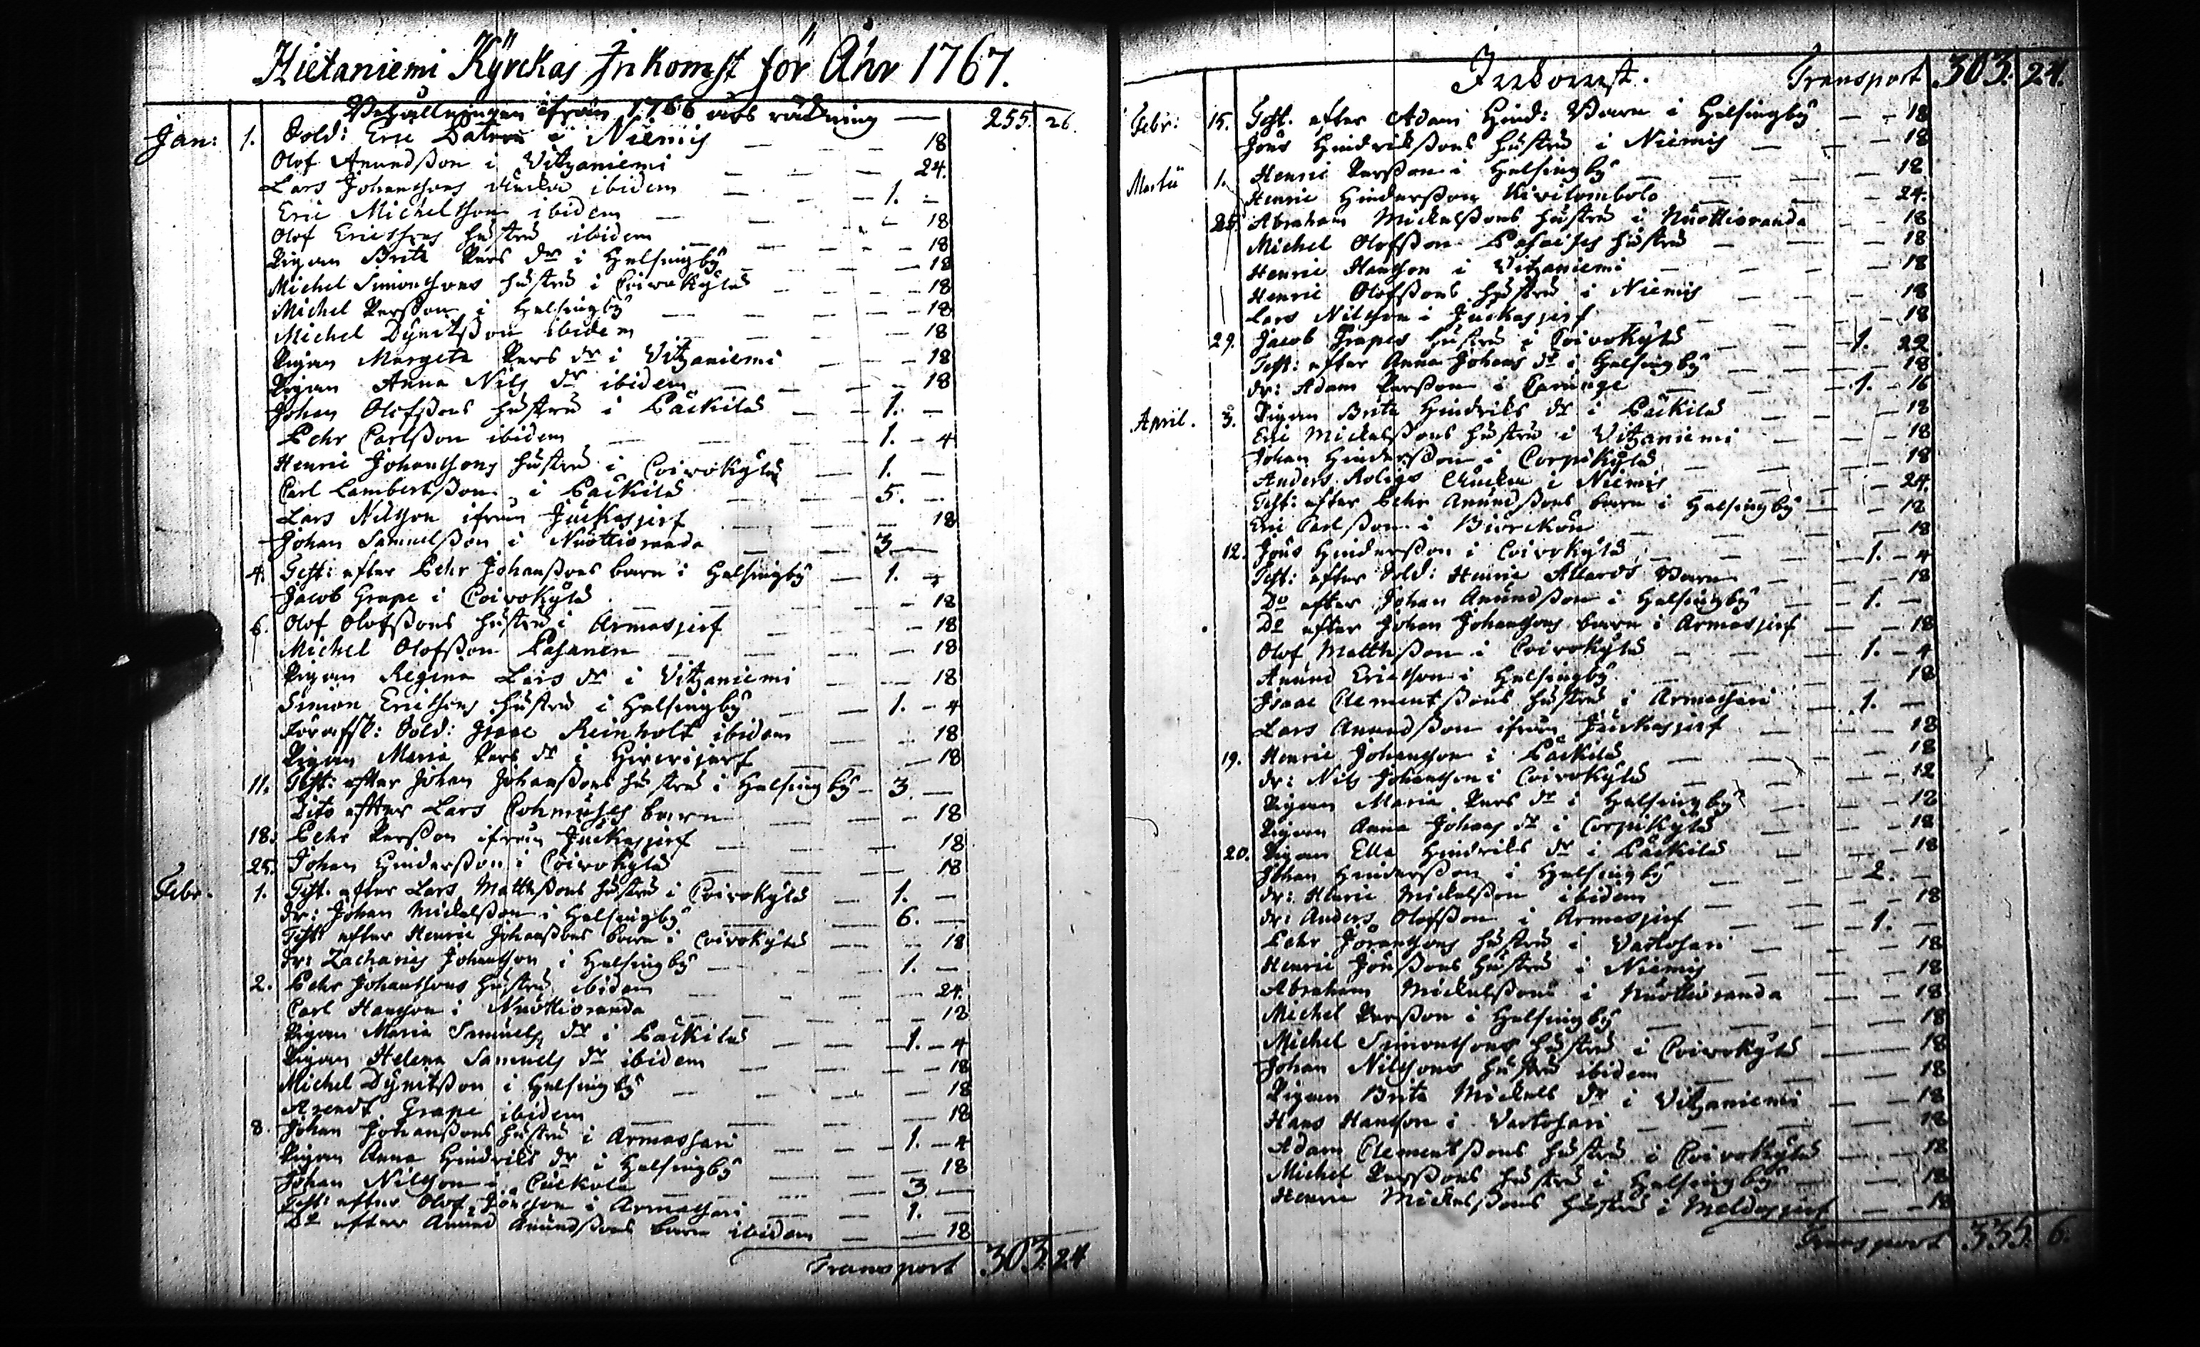 Hietaniemi Kÿrckas Inkomst för Åhr 1767.
Behållningen ifrån 1766 års räkning — 255. 26.
Jan: 1. Sold: Eric i Niemis — 18
Olof Anundßon i Vitzaniemi — 24.
Lars Johanssons ibidem — 1. —
Eric Michelsson ibidem — 18
Olof Ericssons hustru ibidem — 18
Pigan Brita Pers dr i Helsingbÿ — 18
Michel Simonssons hustru i Coivokÿlä — 18
Michel Perßon i Helsingbÿ — 18
Michel Dÿnitßon ibidem — 18
Pigan Margeta Pers dr i Vitzaniemi — 18
Pigan Anna Nils dr ibidem — 18
Johan Olofßons hustru i Päckilä — 1. —
Pehr Carlßon ibidem — 1. - 4
Henric Johanssons hustru i Coivokÿlä — 1. —
Carl Lambertßon i Päckilä — 5. —
Lars Nilsson ifrån Juckasjerf — 18
Johan Samuelßon i Nuottioranda — 3 —
4. Test: efter Pehr Johanßons barn i Helsingbÿ — 1. 4
Jacob Grape i Coivokÿlä — 18
6. Olof Olofßons hustru i Armasjerf — 18
Michel Olofßon Pasanen — 18
Pigan Regina Lars dr i Vitzaniemi — 18
Simon Ericssons hustru i Helsingbÿ — 1. - 4
Sold: Isaac Reinholt ibidem — 18
Pigan Maria Pers dr i Hirvisjerf — 18
11. Test: efter Johan Johanßons hustru i Helsingbÿ — 3. —
Dito efter Lars barn — 18
18. Pehr Perßon ifrån Juckasjerf — 18
25. Johan Hinderßon i Coivokÿlä — 18
Febr. 1. Test. efter Lars Matthßons hustru i Coivokÿlä — 1. —
dr: Johan Mickelßon i Helsingbÿ — 6. —
Test: efter Henric Johanßons barn i Coivokÿlä — 18
dr: Zacharis Johansson i Helsingbÿ — 1. —
2. Pehr Johanssons hustru ibidem — 24.
Carl Hansson i Nuottioranda — 18
Pigan Maria Samuels dr i Päckilä — 1. - 4
Pigan Helena Samuels dr ibidem — 18
Michel Dÿnitßon i Helsingbÿ — 18
Arendt Grape ibidem — 18
8. Johan Johanßons hustru i Armassari — 1. - 4
Pigan Anna Hindriks dr i Helsingbÿ — 18
Johan Nilsson i — 3 —
Test: efter Olof Jönsson i Armassari — 1. —
Do efter Anund Anundßons barn ibidem — 18
Transport 303. 24
Inkomst. Transport 303. 24.
Febr: 15. Test. efter Adam Hind: Barn i Helsingbÿ — 18
Jöns Hindrikßons hustru i Niemis — 18
Martii 1. Henric Perßon i Helsingbÿ — 18
Henric Hinderßon Kivilombolo — 24.
25. Abraham Mickelßons hustru i Nuottioranda — 18
Michel Olofßon hustru — 18
Henric Hansson i Vitzaniemi — 18
Henric Olofßons hustru i Niemis — 18
Lars Nilsson i Juckasjerf — 18
29. Jacob Grapes hustru i Coivokÿlä — 1. 22
Test: efter Anna Johans dr i Helsingbÿ — 18
dr: Adam Perßon i Carunge — 1. - 16
April. 3. Pigan Brita Hindriks dr i Päckilä — 18
Eric Mickelßons hustru i Vitzaniemi — 18
Johan Hinderßon i Corpikÿlä — 18
Anders Roligs i Niemis — 24.
Test: efter Pehr Anundßons barn i Helsingbÿ — 18
Eric Carlßon i Biörckön — 18
12. Jöns Hinderßon i Coivokÿlä — 1. - 4
Test: efter Sold: Henric Allards Barn — 18
Do efter Johan Anundßon i Helsingbÿ — 1. —
Do efter Johan Johanssons barn i Armasjerf — 18
Olof Matthßon i Coivokÿlä — 1. - 4
Anund Ericsson i Helsingbÿ — 18
Isaac Clementßons hustru i Armassari — 1. —
Lars Anundßon ifrån Juckasjerf — 18
19. Henric Johansson i Päckilä — 18
dr: Nils Johansson i Coivokÿlä — 18
Pigan Maria Pers dr i Helsingbÿ — 18
Pigan Anna Johans dr i Corpikÿlä — 18
20. Pigan Ella Hindriks dr i Päckilä — 18
Johan Hinderßon i Helsingbÿ — 2. —
dr: Henric Mickelßon ibidem — 18
dr: Anders Olofßon i Armasjerf — 1. —
Pehr Göranssons hustru i Vartosari — 18
Henric Jönßons hustru i Niemis — 18
Abraham Mickelßons i Nuottioranda — 18
Michel Perßon i Helsingbÿ — 18
Michel Simonssons hustru i Coivokÿlä — 18
Johan Nilssons hustru ibidem — 18
Pigan Brita Mickels dr i Vitzaniemi — 18
Hans Hansson i Vartosari — 18
Adam Clementßons hustru i Coivokÿlä — 18
Michel Perßons hustru i Helsingbÿ — 18
Henric Mickelßons hustru i Meldosjerf — 18
Transport 335. 6.